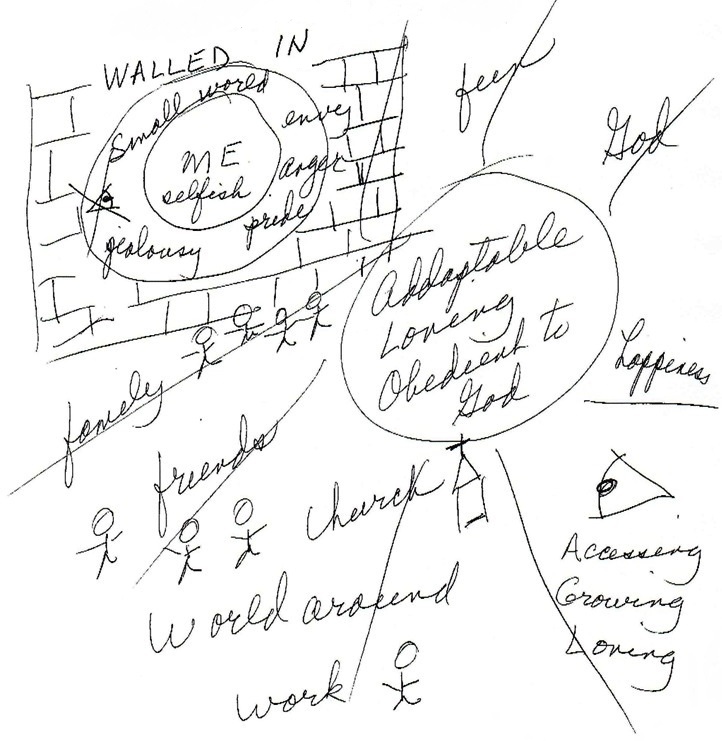 WALLED IN
Small world
envey
ME
selfish
anger
pride
jealousy
fun
God
Addaptable
Loving
Obedient to
God
happiness
famely
friends
church
World around
work
Accessing
Growing
Loving